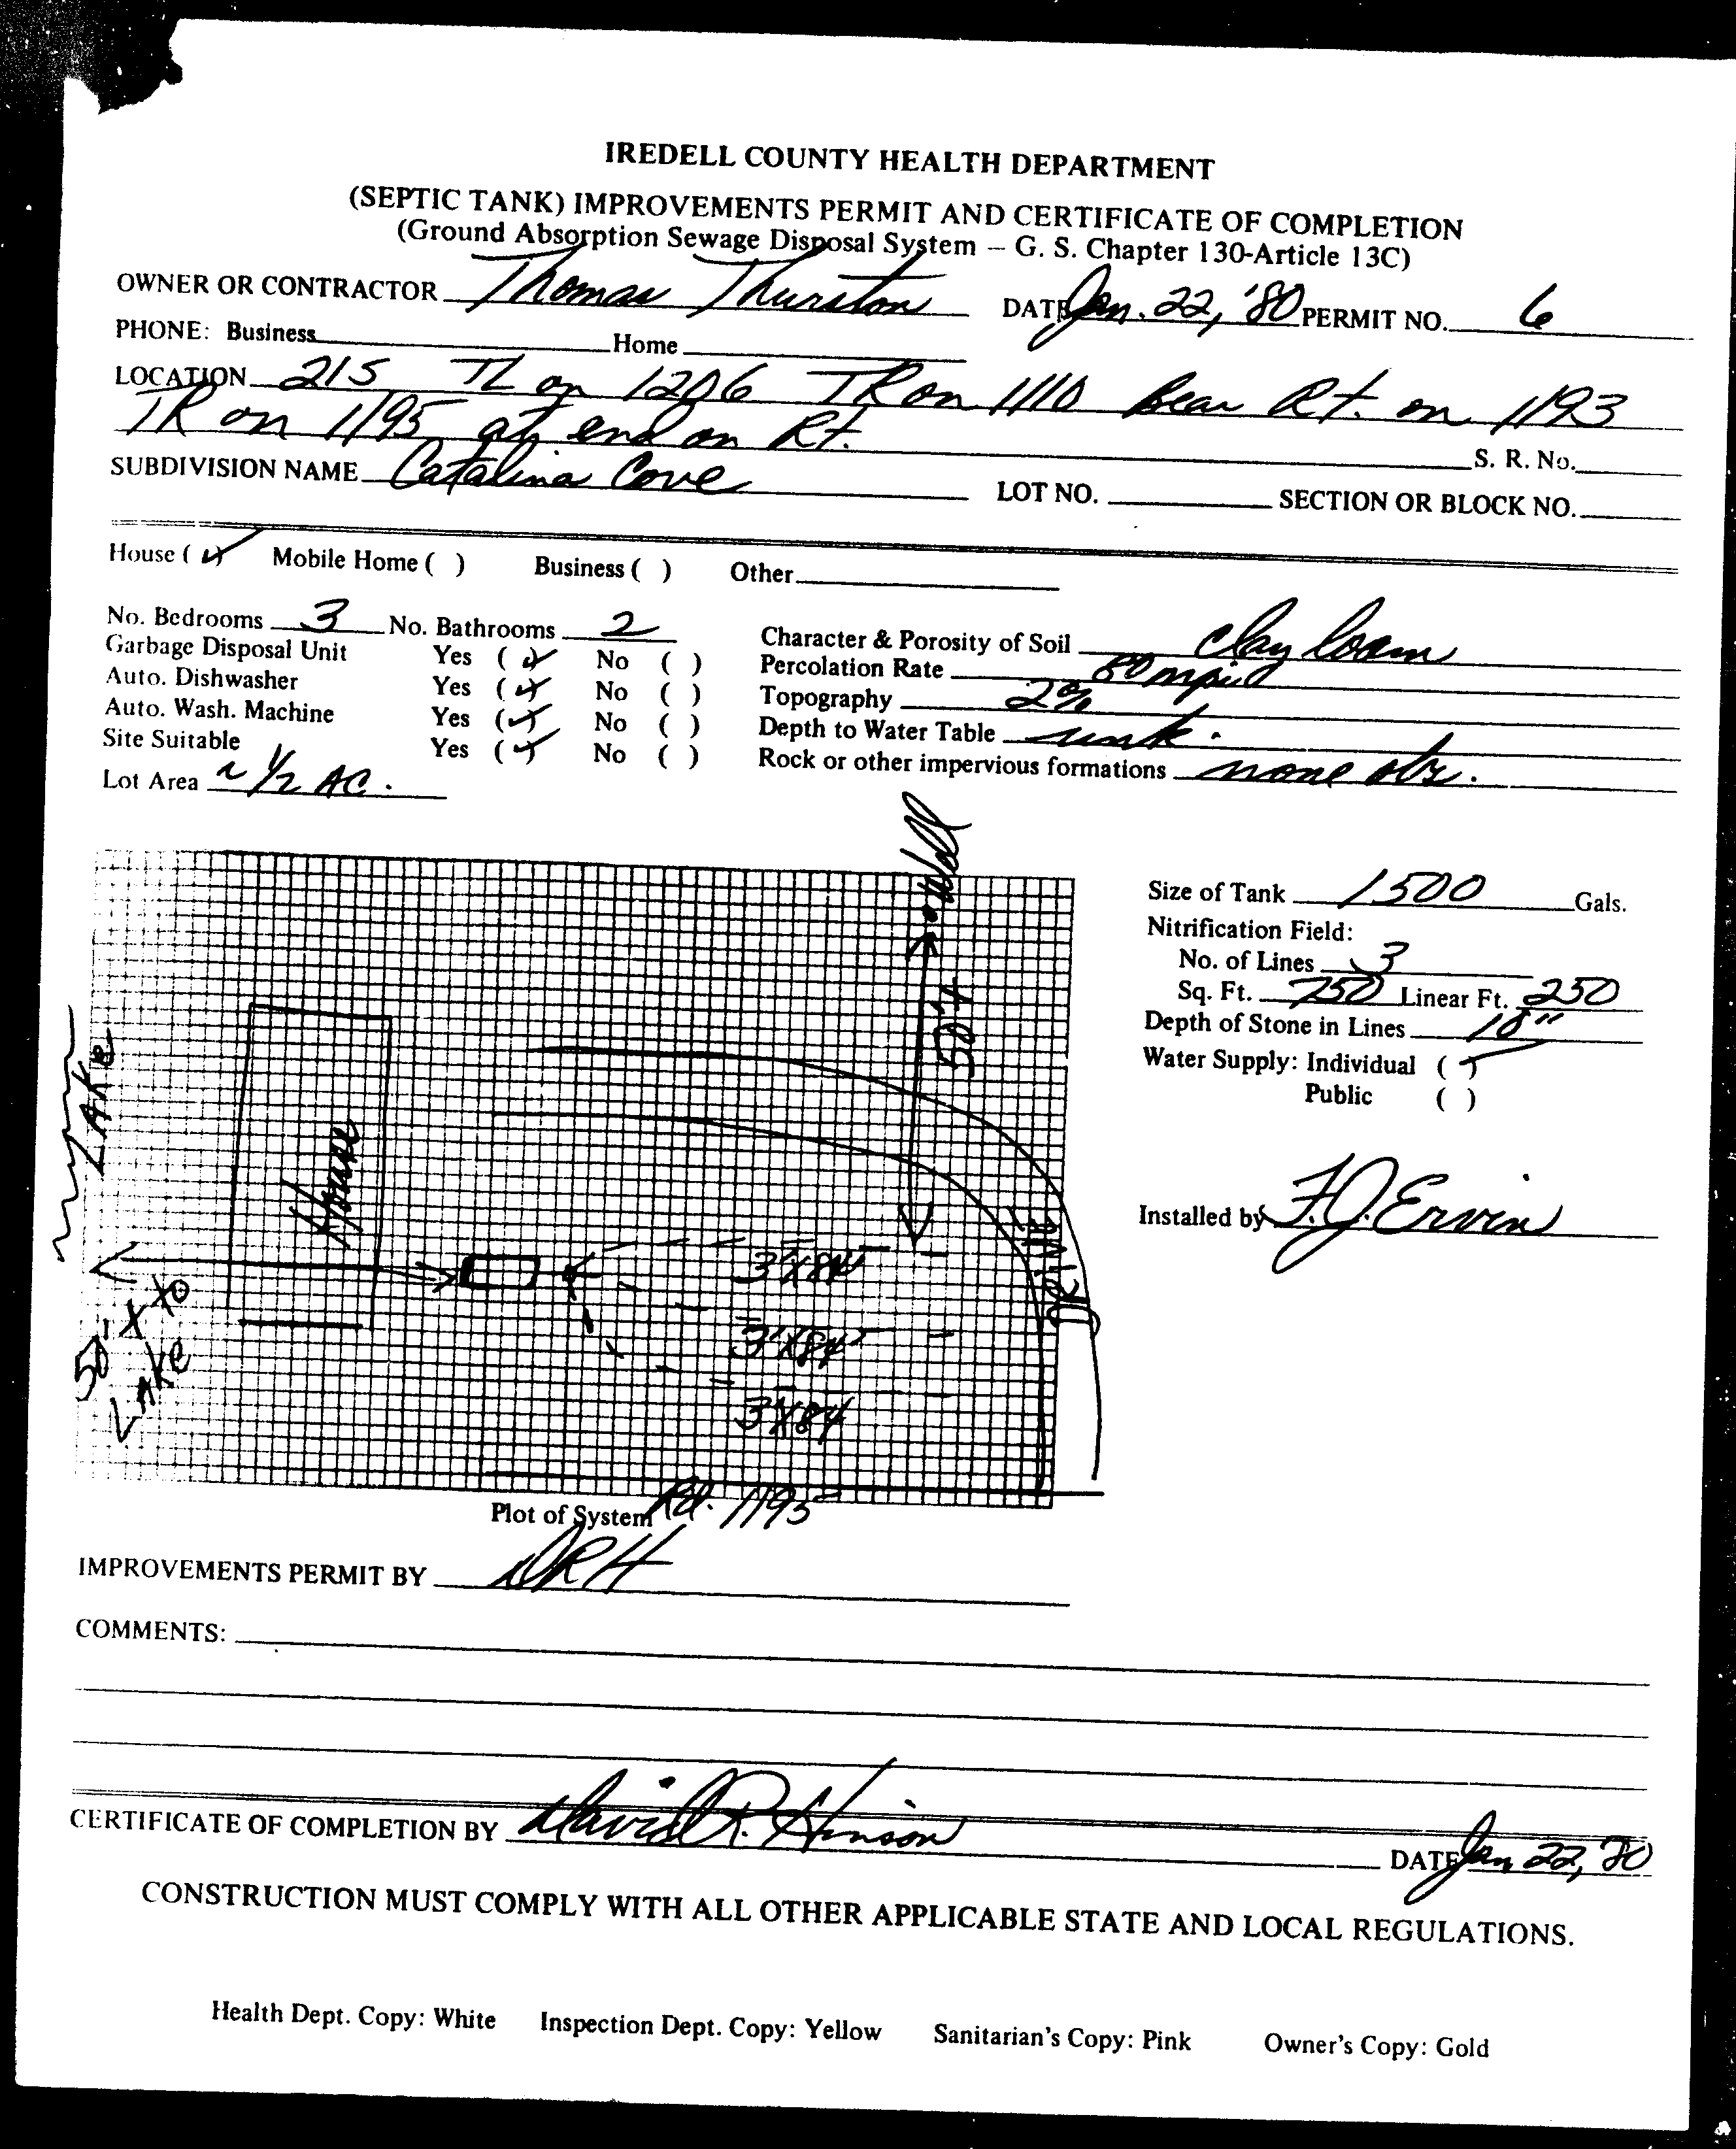 IREDELL COUNTY HEALTH DEPARTMENT
(SEPTIC TANK) IMPROVEMENTS PERMIT AND CERTIFICATE OF COMPLETION
(Ground Absorption Sewage Disposal System – G. S. Chapter 130-Article 13C)
OWNER OR CONTRACTOR Thomas Thurston DATE Jan. 22, '80 PERMIT NO. 6
PHONE: Business Home
LOCATION 21S TL on 1206 TR on 1110 Bear Rt. on 1193
TR on 1195 at end on Rt.
S. R. No.
SUBDIVISION NAME Catalina Cove LOT NO. SECTION OR BLOCK NO.
House (✓) Mobile Home ( ) Business ( ) Other
No. Bedrooms 3 No. Bathrooms 2
Garbage Disposal Unit Yes (✓) No ( )
Auto. Dishwasher Yes (✓) No ( )
Auto. Wash. Machine Yes (✓) No ( )
Site Suitable Yes (✓) No ( )
Lot Area ~ 1/2 AC.
Character & Porosity of Soil Clay loam
Percolation Rate 80 mpi
Topography 2%
Depth to Water Table unk.
Rock or other impervious formations none obs.
Well
50'+
LAKE
House
DRIVE
50' + to
Lake
3'X84'
3'X84'
3'X84
Rd. 1195
Plot of System
Size of Tank 1500 Gals.
Nitrification Field:
No. of Lines 3
Sq. Ft. 750 Linear Ft. 250
Depth of Stone in Lines 18"
Water Supply: Individual (✓)
Public ( )
Installed by F.J. Ervin
IMPROVEMENTS PERMIT BY DRH
COMMENTS:
CERTIFICATE OF COMPLETION BY David R. Hinson
DATE Jan 22, 80
CONSTRUCTION MUST COMPLY WITH ALL OTHER APPLICABLE STATE AND LOCAL REGULATIONS.
Health Dept. Copy: White Inspection Dept. Copy: Yellow Sanitarian's Copy: Pink Owner's Copy: Gold